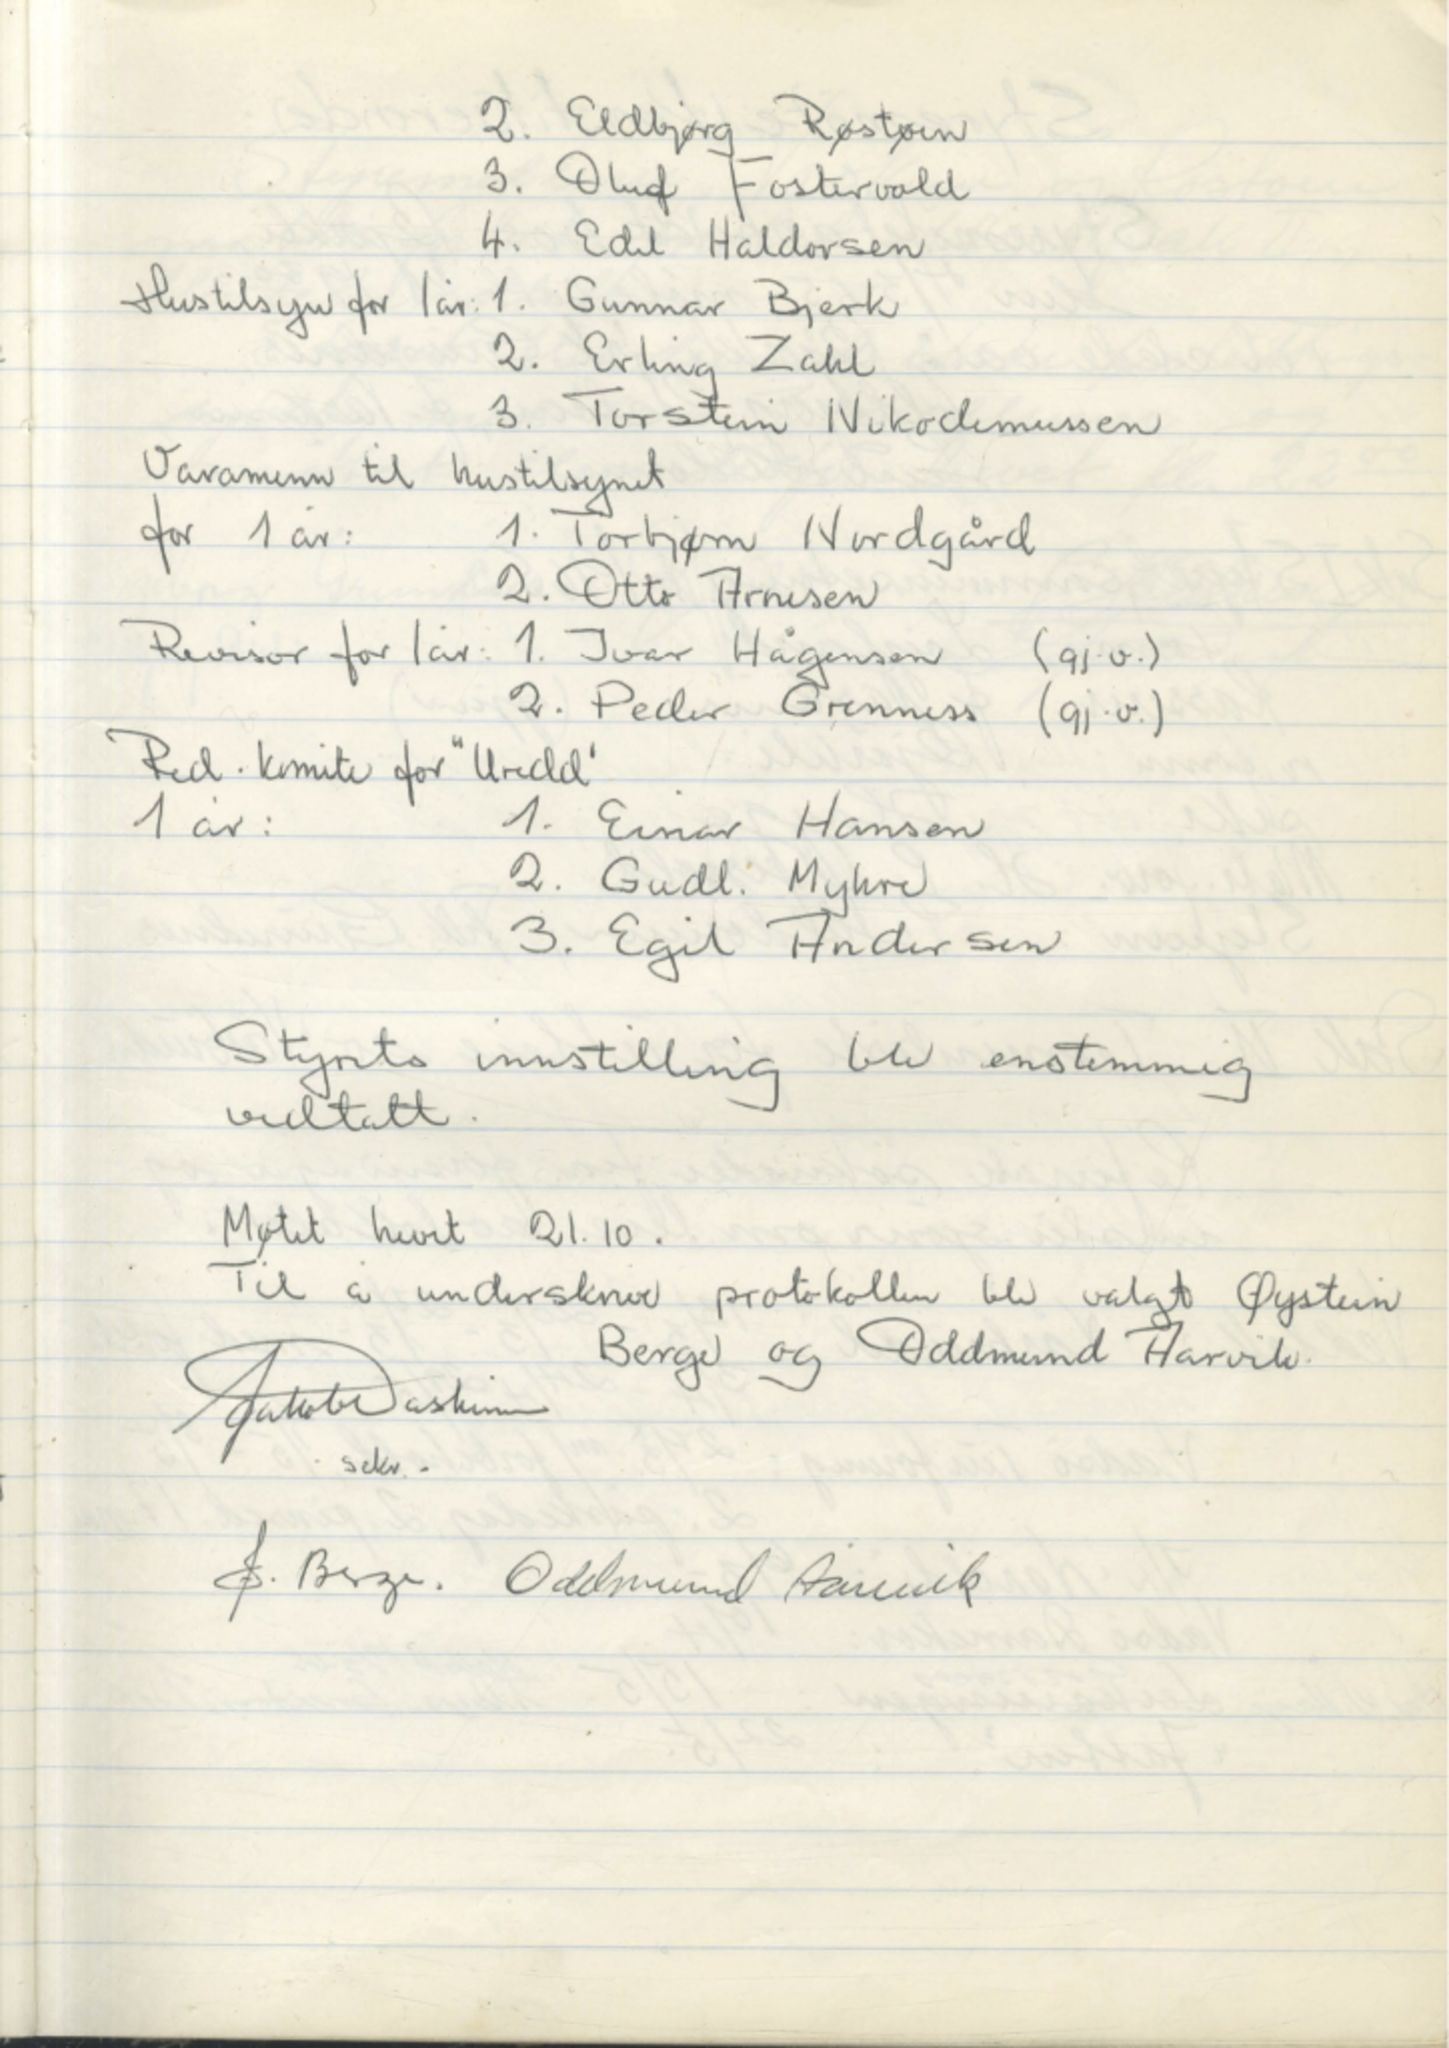 2. Eldbjørg Røstøen
3. Oluf Fostervold
4. Edel Haldorsen
Hustilsyn for 1 år: 1. Gunnar Bjerk
2. Erling Zahl
3. Torstein Nikodemussen
Varamenn til hustilsynet
for 1 år: 1. Torbjørn Nordgård
2. Otto Arnesen
Revisor for 1 år: 1. Ivar Hågensen (gj.v.)
2. Peder Grenness (gj.v.)
Red. komite for "Uredd"
1 år: 1. Einar Hansen
2. Gudl. Myhre
3. Egil Andersen
Styrets innstilling ble enstemmig
vedtatt.
Møtet hevet 21.10.
Til å underskrive protokollen ble valgt Øystein
Berge og Oddmund Aarvik.
sekr.
Ø. Berge. Oddmund Aarvik